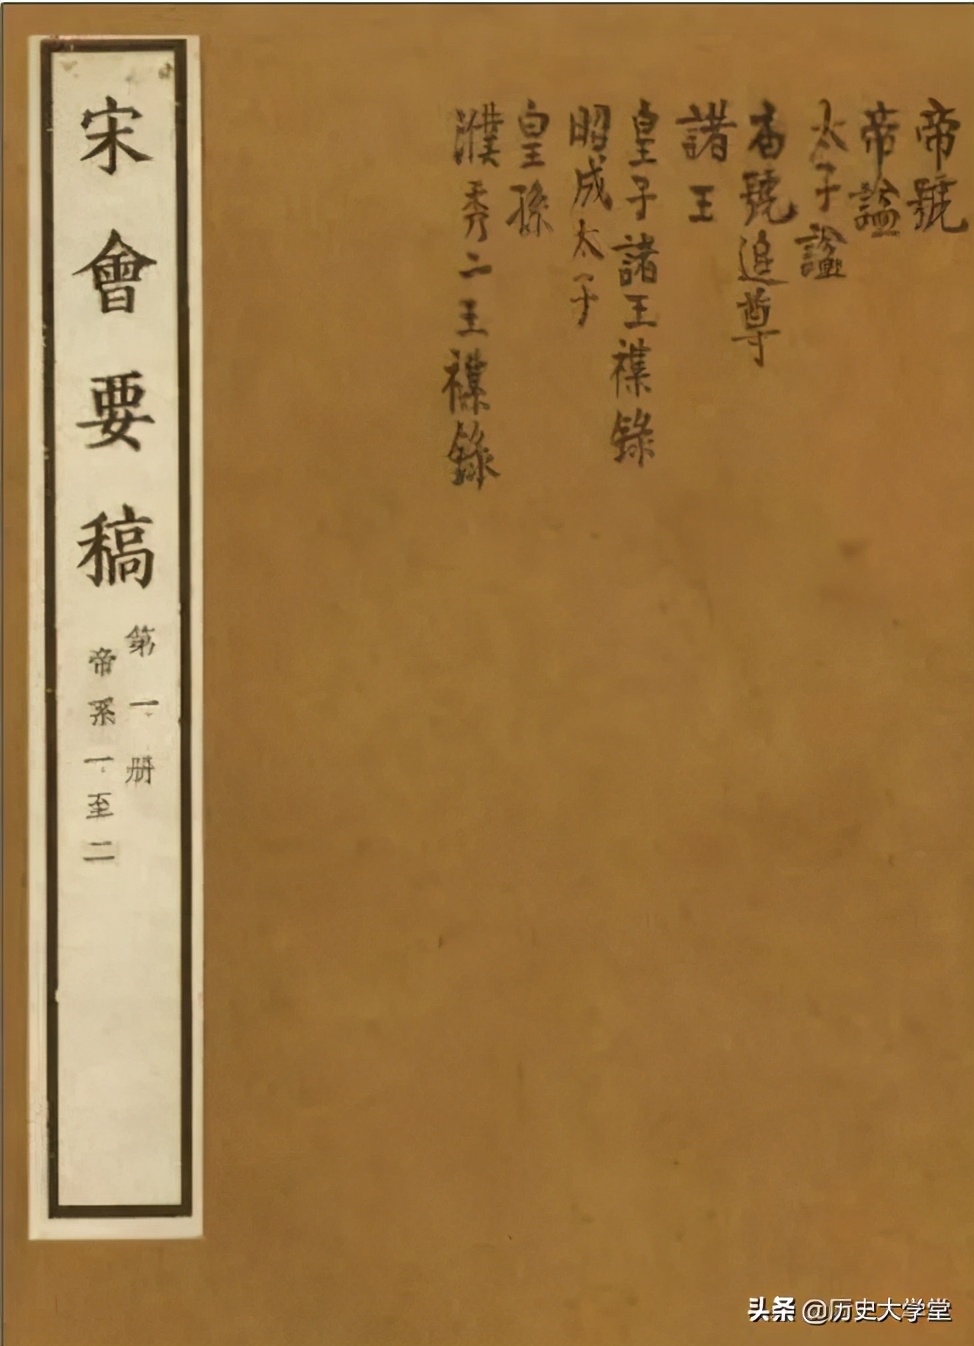 帝號
帝謚
太子謚
號追尊
諸王
皇子諸王襍錄
昭成太子
皇孫
濮秀二王襍錄
宋會要稿
第一册
帝系一至二
头条 @历史大学堂